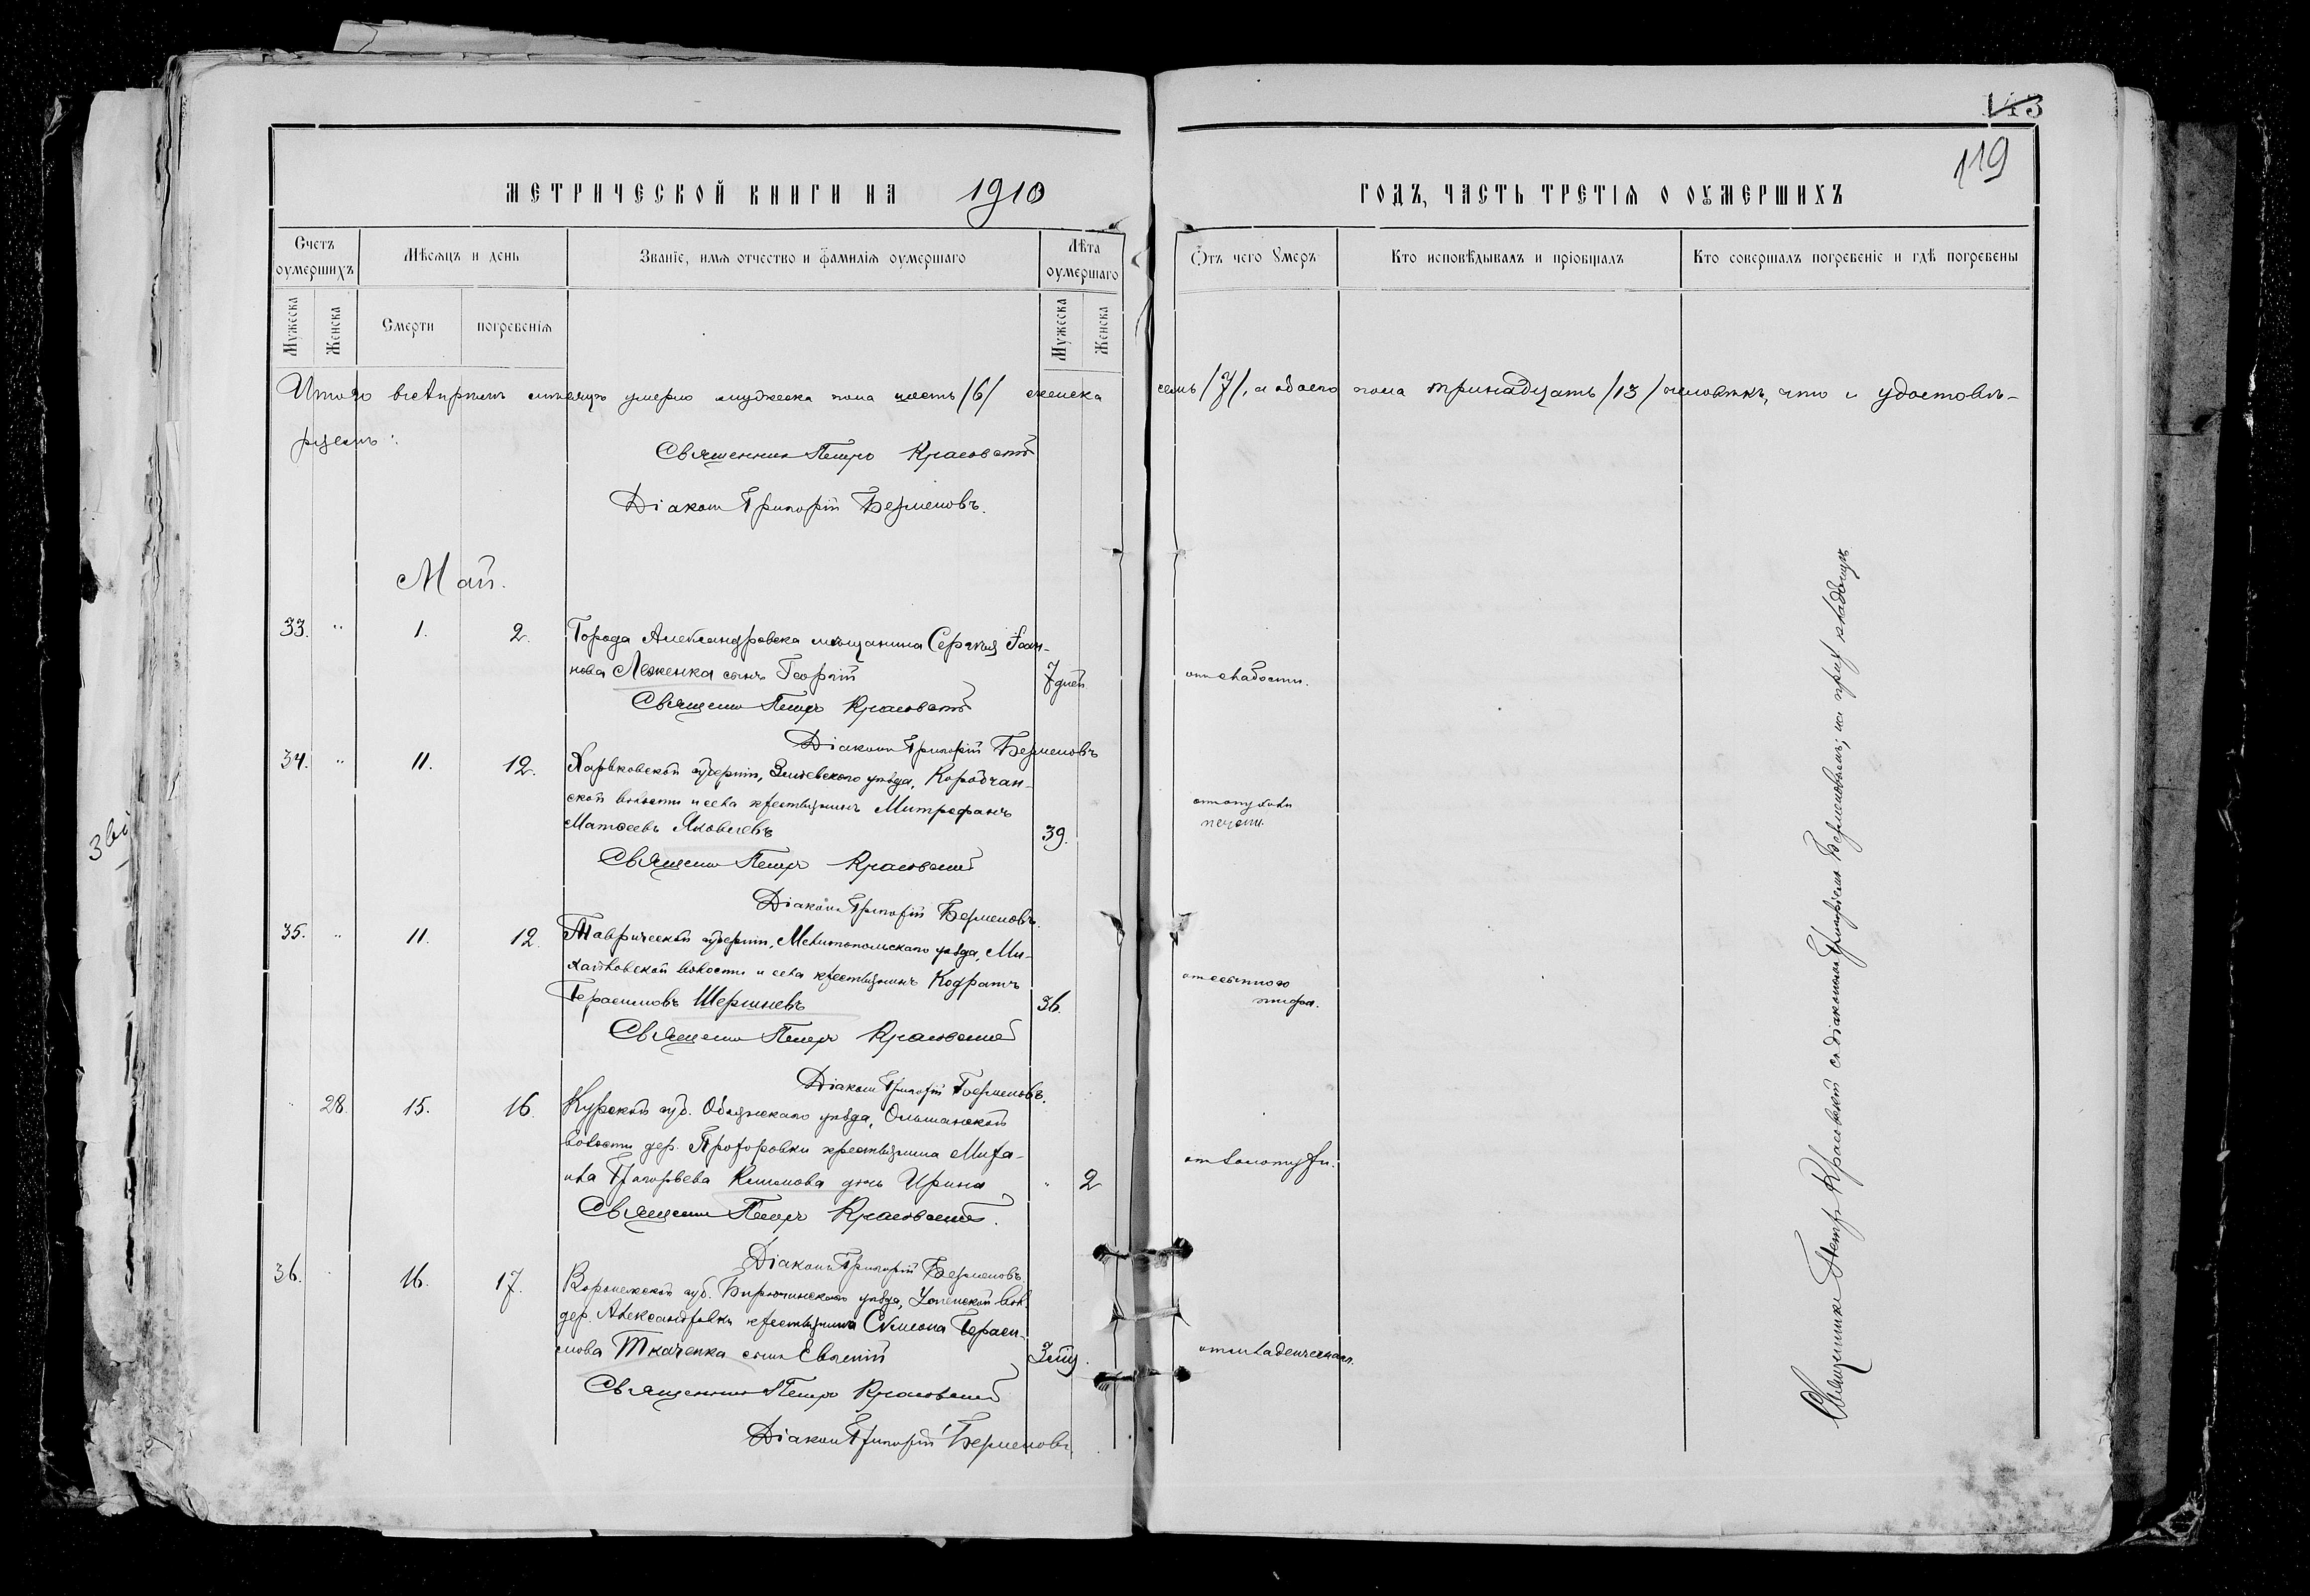 143
119
МЕТРИЧЕСКОЙ КНИГИ НА 1910 ГОДЪ, ЧАСТЬ ТРЕТІЯ О ОУМЕРШИХЪ
Счетъ оумершихъ
Мѣсяцъ и день
Званіе, имя отчество и фамилія оумершаго
Лѣта оумершаго
Отъ чего Умеръ
Кто исповѣдывалъ и пріобщалъ
Кто совершалъ погребеніе и гдѣ погребены
Мужеска
Женска
Смерти
погребенія
Мужеска
Женска
Итого въ апрѣлѣ мѣсяцѣ умерло мужеска пола шесть /6/ женска семь /7/, а обоего пола тринадцать /13/ человѣкъ, что и удостовѣ-
ряемъ:
Священникъ Петръ Красовскій
Діаконъ Григорій Безменовъ.
Май.
33. " 1. 2. Города Александровска мѣщанина Сергѣя Іоан-
нова Леженка сынъ Георгій 7 дней отъ слабости.
Священникъ Петръ Красовскій
Діаконъ Григорій Безменовъ
34. " 11. 12. Харьковской губерніи, Зміевского уѣзда, Коробчан-
ской волости и села крестьянинъ Митрофанъ
Матѳеевъ Яковлевъ 39. отъ опухоли
печени.
Священникъ Петръ Красовскій
Діаконъ Григорій Безменовъ.
35. " 11. 12. Таврической губерніи, Мелитопольскаго уѣзда, Ми-
хайловской волости и села крестьянинъ Кодратъ
Герасимовъ Шершневъ 36. отъ сыпного
тифа.
Священникъ Петръ Красовскій
Діаконъ Григорій Безменовъ.
" 28. 15. 16. Курской губ. Обоянскаго уѣзда, Ольшанской
волости дер. Прохоровки крестьянина Миха-
ила Григорьева Климова дочь Ирина " 2 отъ золотухи.
Священникъ Петръ Красовскій.
Діаконъ Григорій Безменовъ.
36. " 16. 17. Воронежской губ. Бирюченскаго уѣзда, Успенской вол.
дер. Александровки крестьянина Симеона Гераси-
мова Ткаченка сынъ Евгеній 3 мѣс. отъ младенческой.
Священникъ Петръ Красовскій
Діаконъ Григорій Безменовъ
Священникъ Петръ Красовскій съ діакономъ Григоріемъ Безменовымъ; на прих. кладбищѣ.